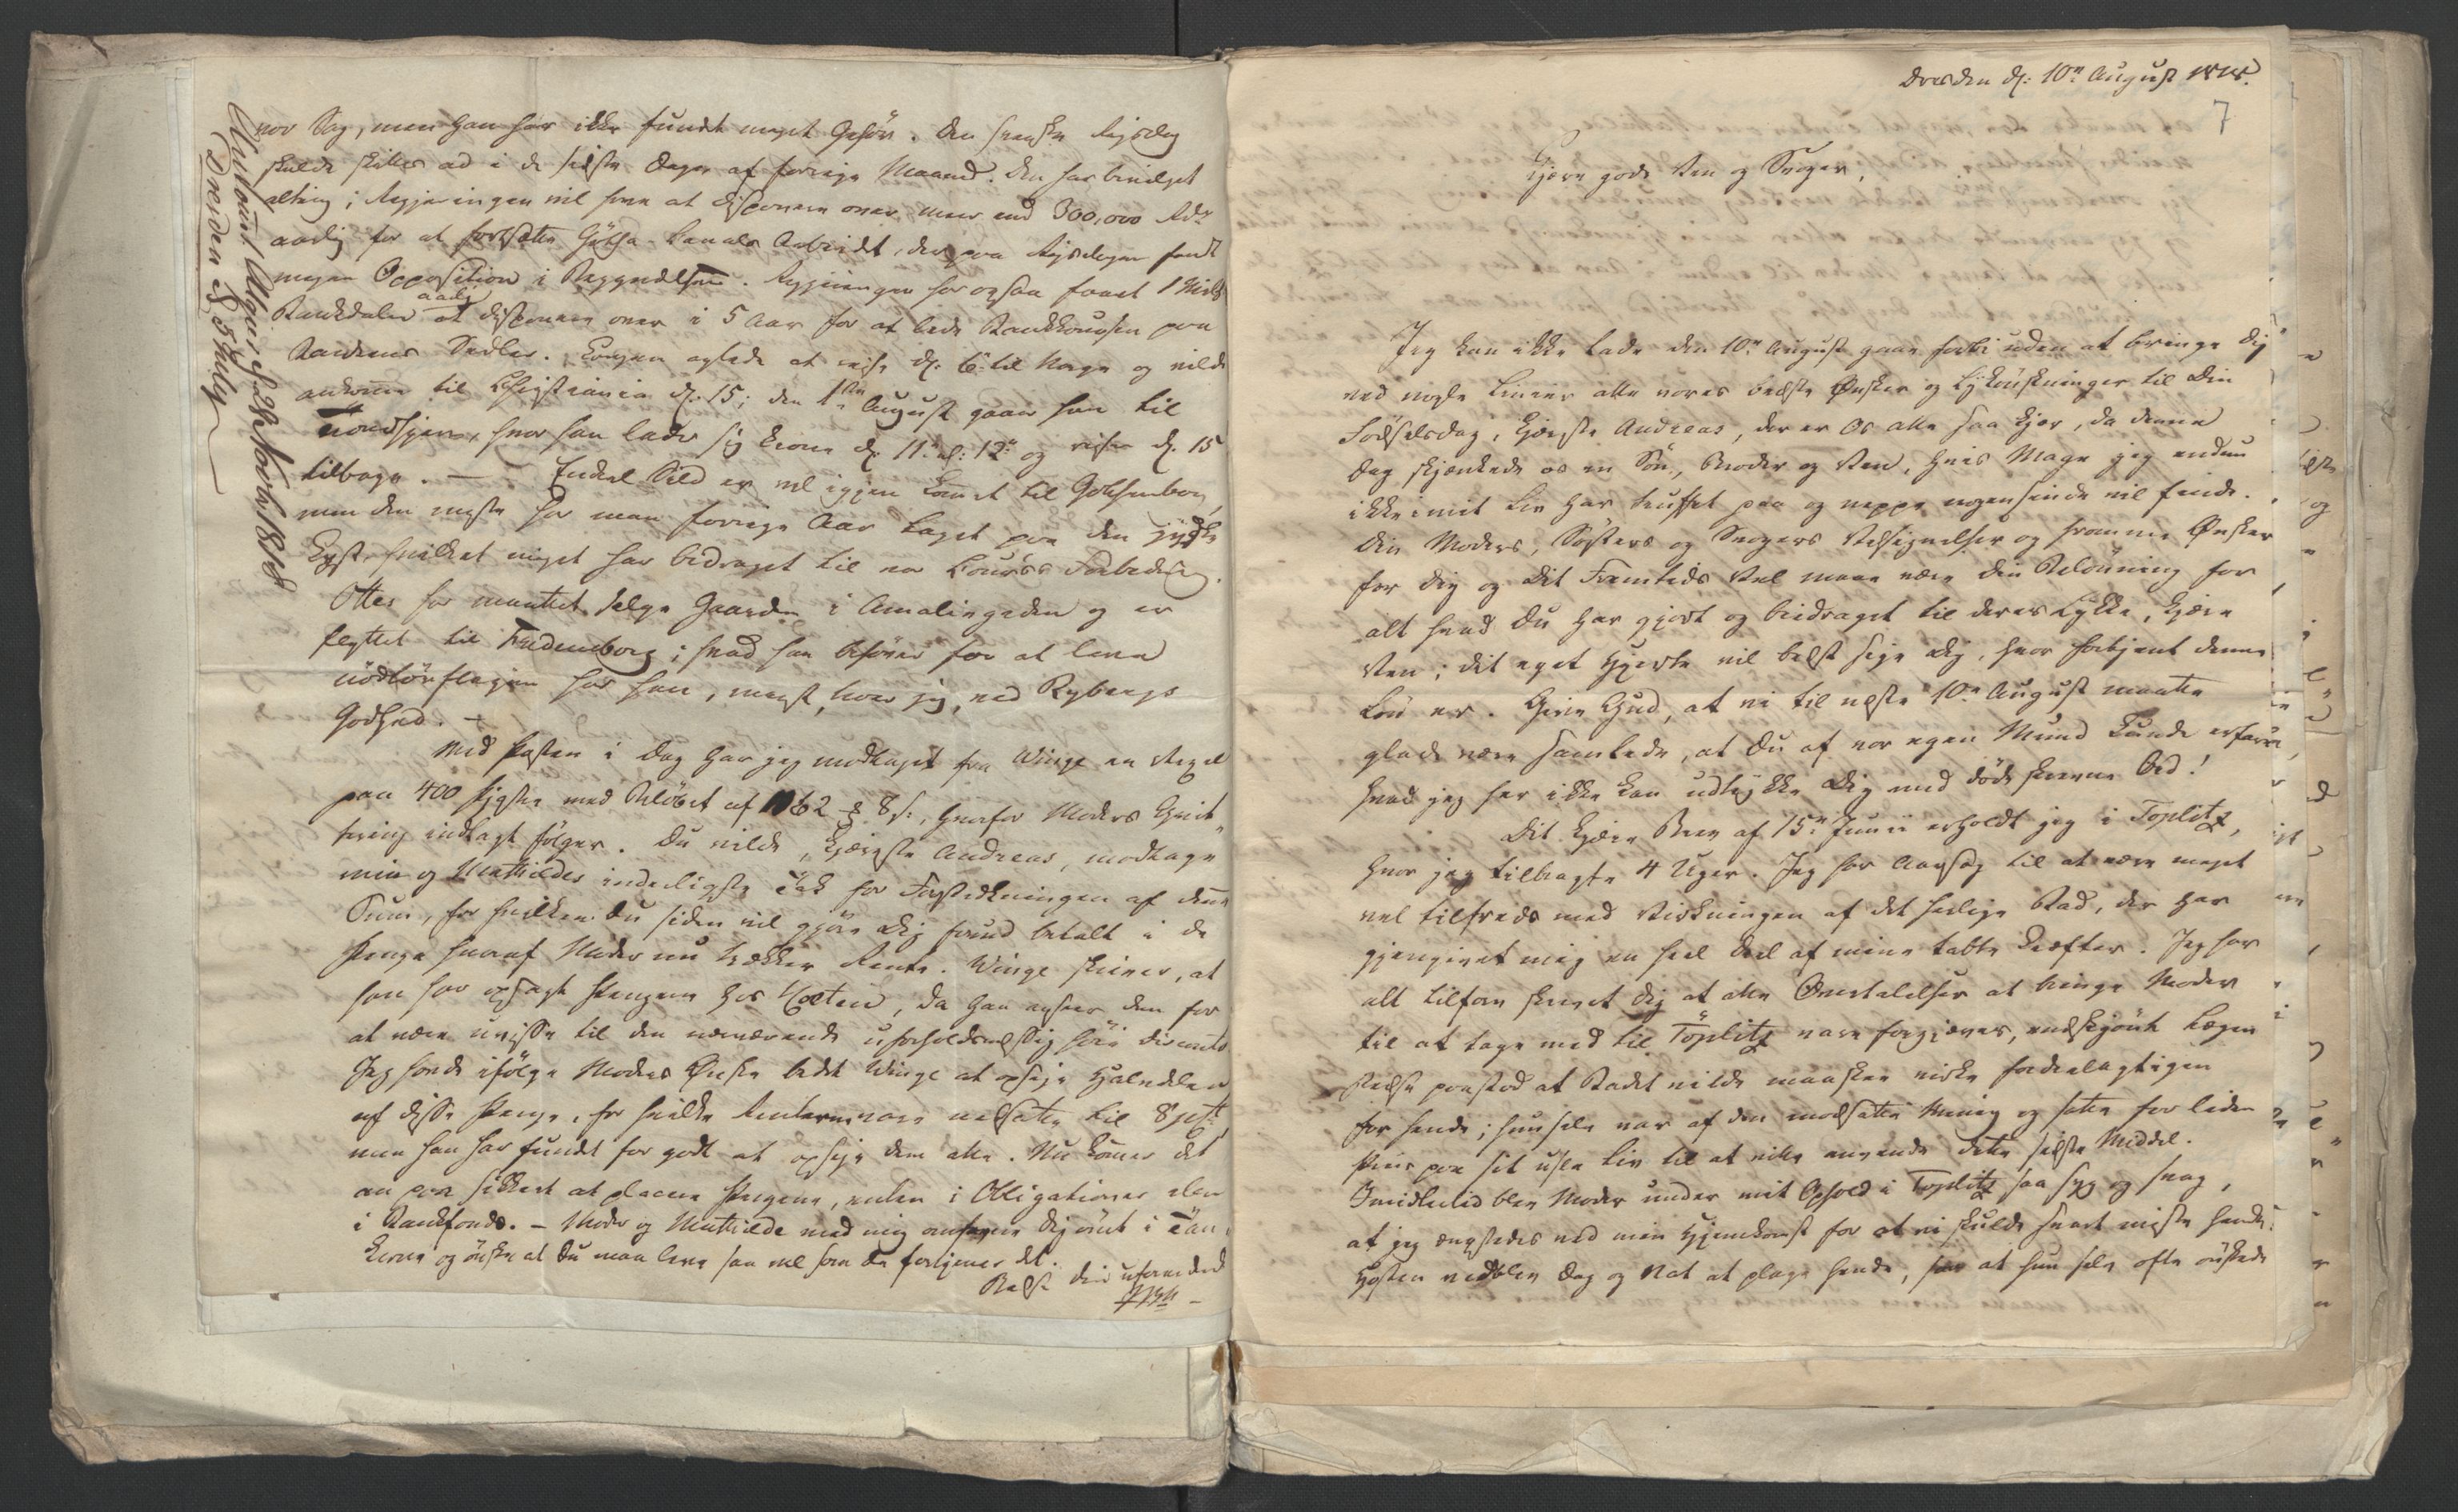 vor Sag, men han har ikke fundet meget Gehör. Den svenske Rigsdag
skulde skilles ad i de sidste Dage af forrige Maaned. Den har bevilget
alting; Regjeringen vil have at disponere over meer end 300,000 Rdr
aarlig for at fortsætte Götha-Canals Arbeidet, der paa Rigsdagen fandt
megen Opposition i Begyndelsen. Regjeringen har ogsaa faaet 1 Mill
Bankdaler aarlig at disponere over i 5 Aar for at lede Bankkoursen paa
Bankens Sedler. Kongen agtede at reise d. 6 til Norge og vilde
ankomme til Christiania d. 15; den 1ste August gaaer han til
Trondhjem, hvor han lader sig krone d. 11 el: 12 og reiser d. 15
tilbage. — Endeel Sild er vel igjen kommet til Gothenborg,
men den meste har man forrige Aar taget paa den jydske
Kyst, hvilket meget har bidraget til vor Courses Forbedring.
Otter har maattet sælge Gaarden i Amaliegaden og er
flyttet til Fredensborg; hvad han behöver for at leve
nödtörftigen har han, meest, troer jeg, ved Rybergs
Godhed. —
Med Posten i Dag har jeg modtaget fra Winge en Vexel
paa 400 Species med Belöbet af 1062 ꝳ 8 s., hvorfor Moders Qvit-
tering indlagt fölger. Du vilde, kjæreste Andreas, modtage
min og Mathildes inderligste Tak for Forstrækningen af denne
Sum, for hvilken Du siden vil gjöre Dig saund betalt i de
Penge hvoraf Moder nu trækker Rente. Winge skriver, at
han har opsagt Pengene hos Holten, da han anseer dem for
at være uvisse til den nærværende uforholdsmæssig höie Disconto
Jeg havde ifölge Moders Önske bedt Winge at opsige Halvdelen
af disse Penge, for hvilke Renterne vare nedsatte til 8 pCt,
men han har fundet for godt at opsige dem alle. Nu kommer det
an paa sikkert at placere Pengene, enten i Obligationer eller
i Bankfonds. — Moder og Mathilde med mig omfavne Dig ömt i Tan-
kerne og önske at Du maa leve saa vel som Du fortjener det.
Bedst Din uforandrede
Antount Algier d 28 Novbr 1818
Dresden d 5 July
Dresden d: 10n August 1818.
7
Kjere gode Ven og Svoger,
Jeg kan ikke lade den 10n August gaae forbi uden at bringe Dig
ved nogle Linier alle vores bedste Önsker og Lykönskninger til Din
Födselsdag, kjæreste Andreas, der er Os alle saa kjær, da denne
Dag skjænkede os en Sön, Broder og Ven, hvis Mage jeg endnu
ikke i mit Liv har truffet paa og neppe nogensinde vil finde.
Din Moders, Sösters og Svogers Velsignelser og fromme Önsker
for Dig og Dit Fremtids Vel maae være Din Belönning for
alt hvad Du har gjort og bidraget til deres Lykke, kjære
Ven; Dit eget Hjerte vil bedst sige Dig, hvor fortjent denne
Lön er. Give Gud, at vi til næste 10n August maatte
glade være samlede, at Du af vor egen Mund kunde erfare,
hvad jeg her ikke kan udtrykke Dig med döde skrevne Ord!
Dit kjære Brev af 15n Junii erholdt jeg i Töplitz,
hvor jeg tilbragte 4 Uger. Jeg har Aarsag til at være meget
vel tilfreds med Virkningen af det herlige Bad, der har
gjengivet mig en heel Deel af mine tabte Kræfter. Jeg har
alt tilforn skrevet Dig at alle Overtalelser at bringe Moder
til at tage med til Töplitz vare forgjæves, endskjönt Lægen
stedse paastod at Badet vilde maaskee virke fordeelagtigen
for hende; hun selv var af den modsatte Mening og satte for liden
Priis paa sit usle Liv til at ville anvende dette sidste Middel.
Imidlertid blev Moder under mit Ophold i Töplitz saa syg og svag,
at jeg ængstedes ved min Hjemkomst for at vi skulde snart miste hende.
Hosten vedblev Dag og Nat at plage hende, saa at hun selv ofte önskede